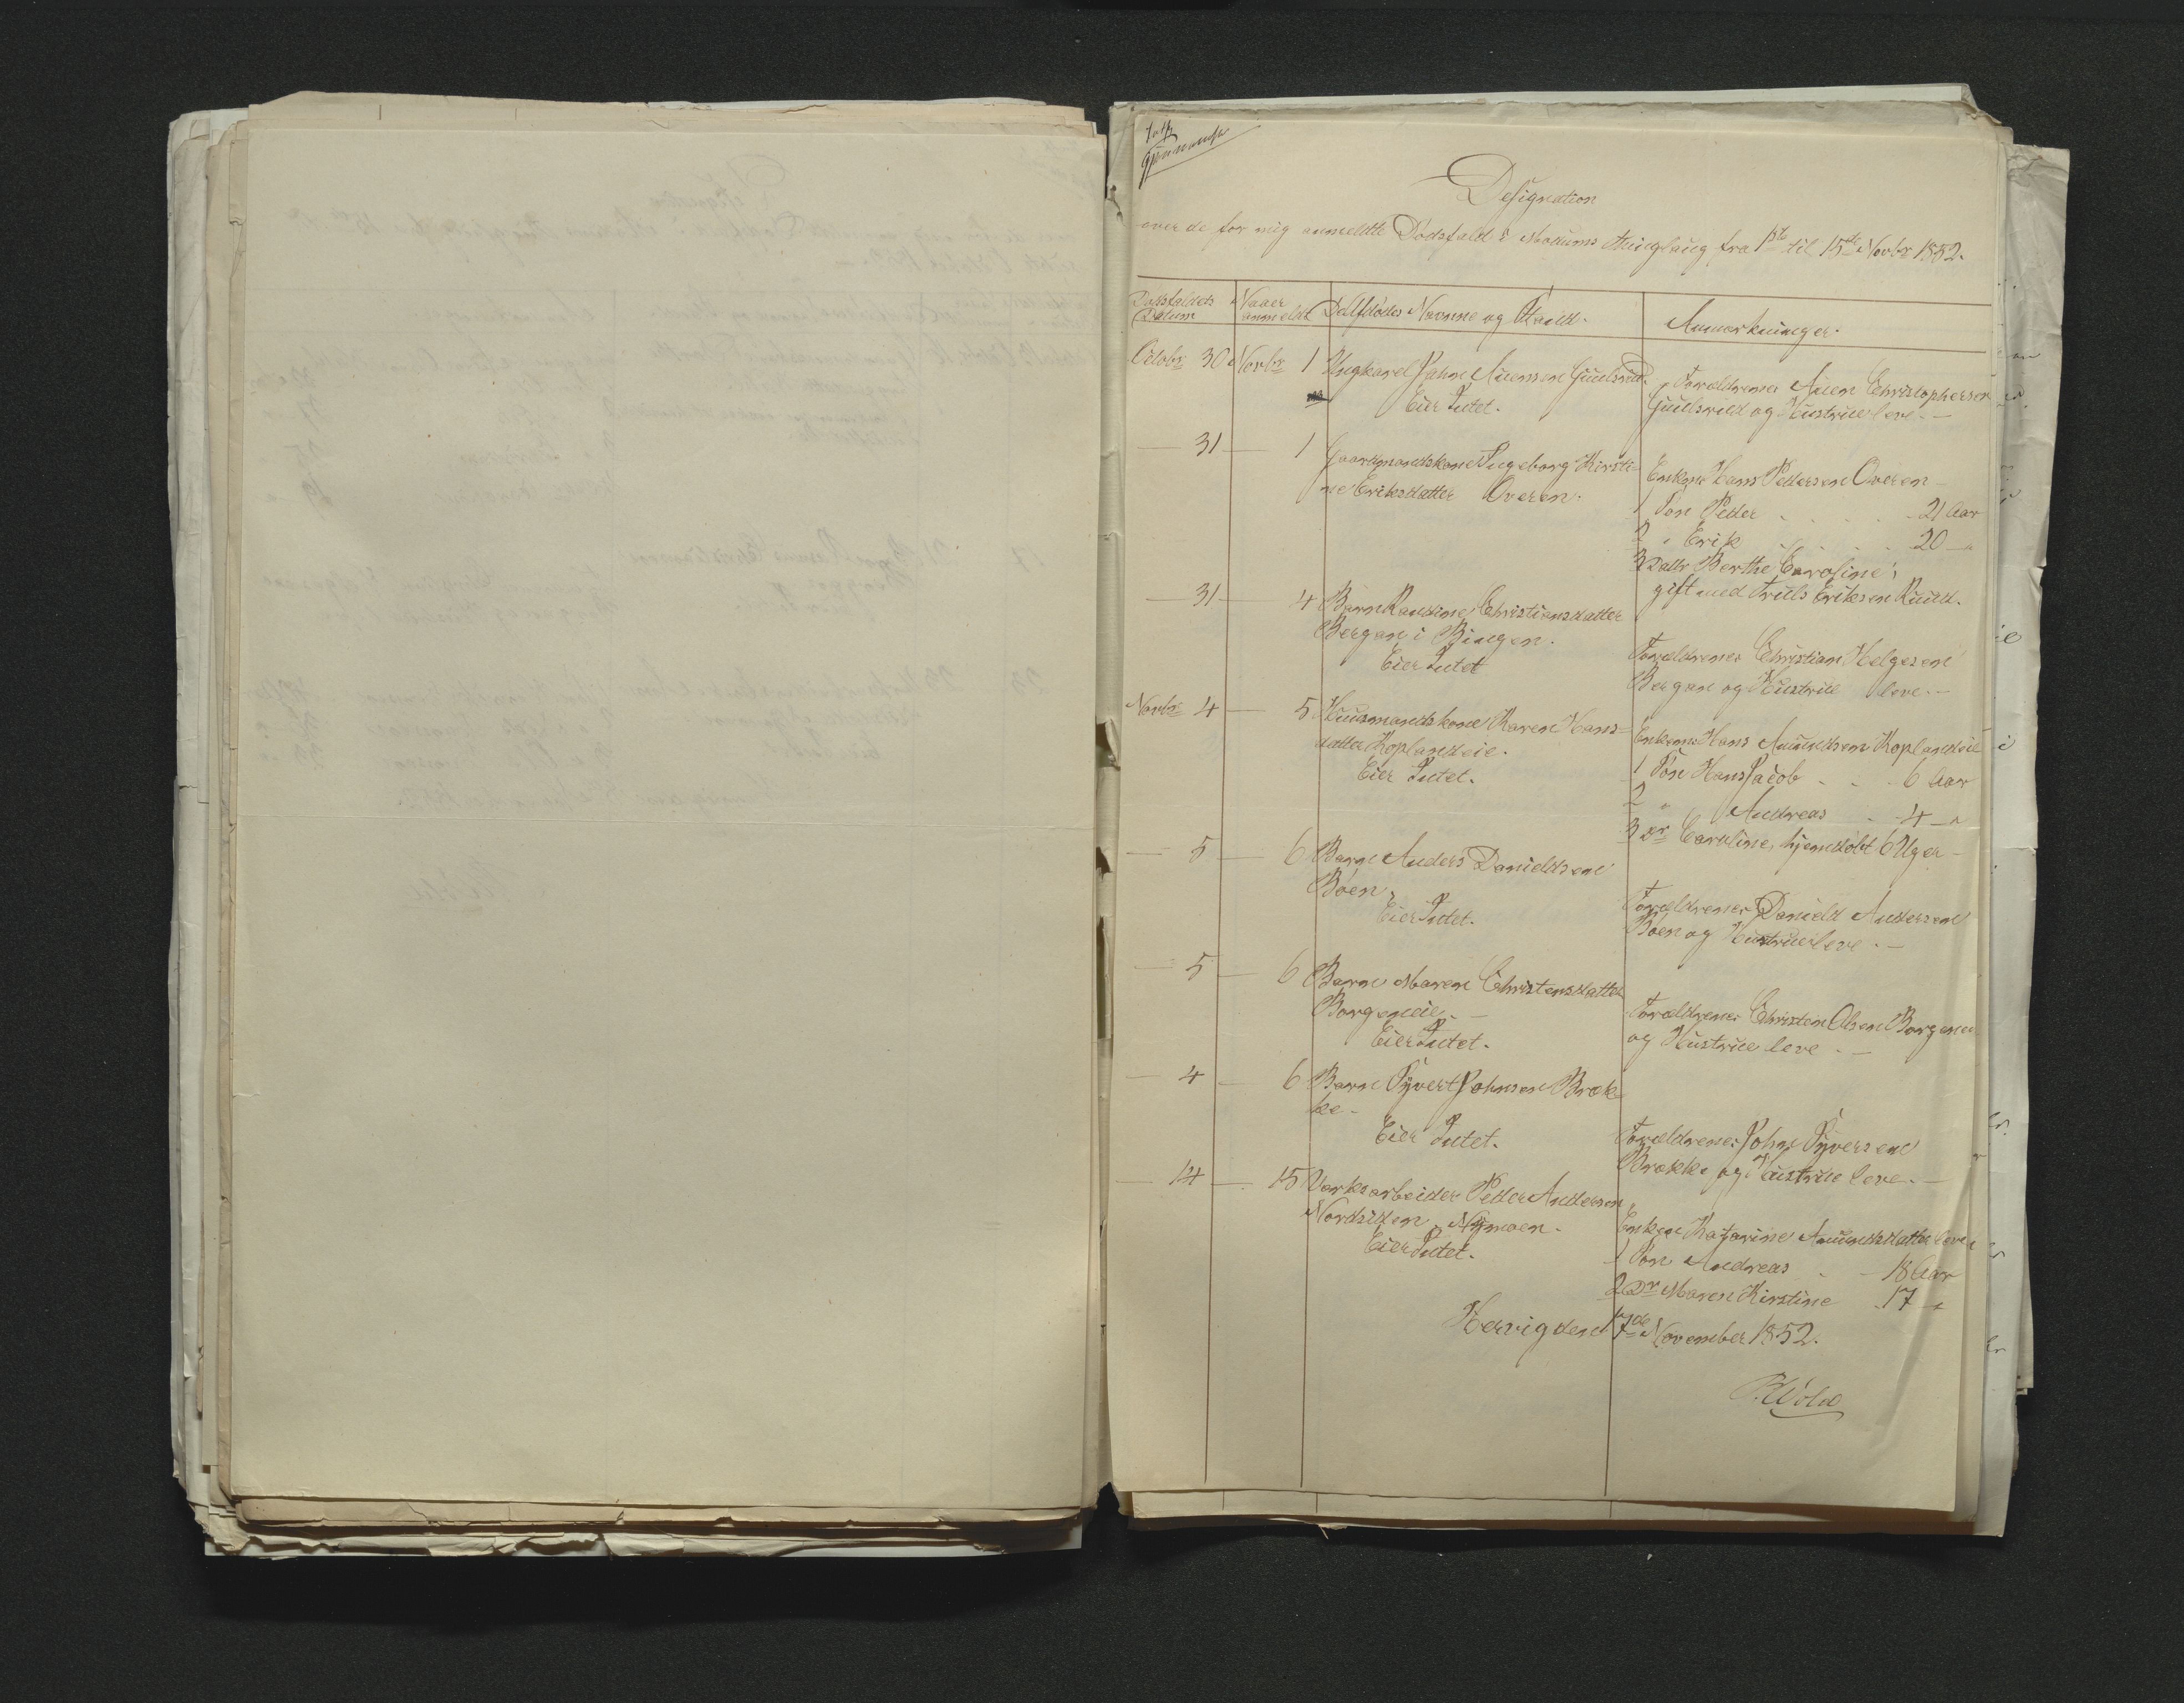 Designation
over de for mig anmeldte Dødsfald i Modums Thinglaug fra 1ste til 15de Novbr 1852.
Dødsfaldets Datum
Naaer anmeldt
Den Afdødes Navne og Stand.
Anmærkninger.
Octobr 30 Novbr 1 Ungkarl John Auensen Guulsrud.
Eier Intet.
Forældrene Auen Christophersen
Guulsrud og Hustrue leve. —
— 31 — 1 Gaardmandskone Ingeborg Kirsti-
ne Eriksdatter Overen.
Enkem Hans Pedersen Overen
1 Søn Peder . . . . 21 Aar
2 " Erik . . . . 20 — "
3 Dattr Berthe Caroline,
gift med Truls Eriksen Ruud.
— 31 — 4 Barn Randine Christiansdatter
Bergan i Bingen.
Eier Intet
Forældrene Christian Helgesen
Bergan og Hustrue leve. —
Novbr 4 — 5 Huusmandskone Karen Hans-
datter Koplandeie.
Eier Intet.
Enkem Hans Amundsen Koplandeie
1 Søn Hans Jacob . . 6 Aar
2 " Andreas . . 4 — "
3 Dr Caroline, hjemdøbt 6 Uger
— 5 — 6 Barn Anders Danieldsen
Bøen,
Eier Intet.
Forældrene Danield Andersen
Bøen og Hustrue leve. —
— 5 — 6 Barn Maren Christensdatter
Borgeneie. —
Eier Intet.
Forældrene Christen Olsen Borgeneie
og Hustrue leve. —
— 4 — 6 Barn Syvert Johnsen Bræk-
ke -
Eier Intet.
Forældrene John Syversen
Brække og Hustrue leve. —
— 14 — 15 Værksarbeider Peder Andersen
Nordsiden, Nymoen.
Eier Intet.
Enken Katarine Amundsdatter leve
1 Søn Andreas . . 18 Aar
2 Dr Maren Kirstine . 17 — "
Hervig den 17de November 1852.